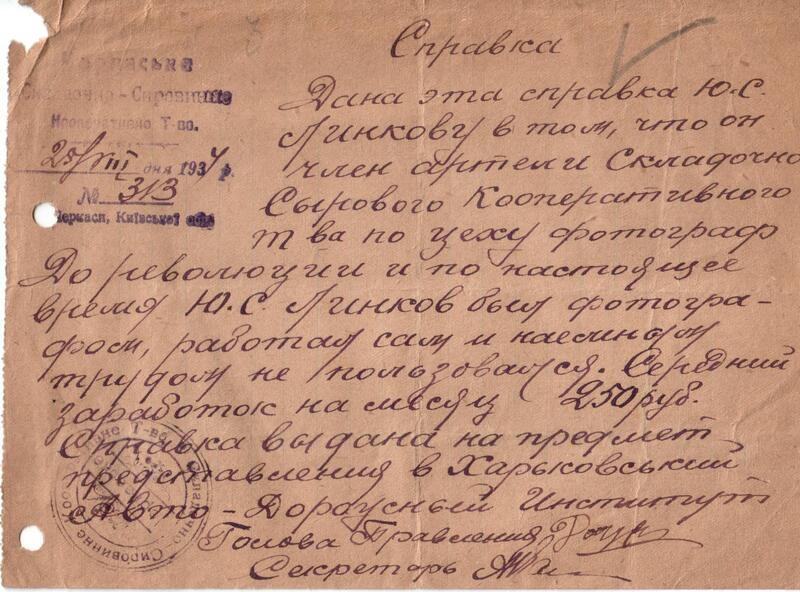 Справка
Черкаське
Складочно-Сировинне
Кооперативно Т-во.
25/VIII дня 1934 р.
№ 313
Черкаси, Київської обл
Дана эта справка Ю.С.
Линкову в том, что он
член артели Складочно
Сырового Кооперативного
т ва по цеху фотограф
До революции и по настоящее
время Ю.С. Линков был фотогра-
фом, работал сам и наемным
трудом не пользовался. Середний
заработок на месяц 250 руб.
Справка выдана на предмет
представления в Харьковский
Авто-Дорожный Институт
Голова Правления
Секретарь
Складочно Сировинне Т-во